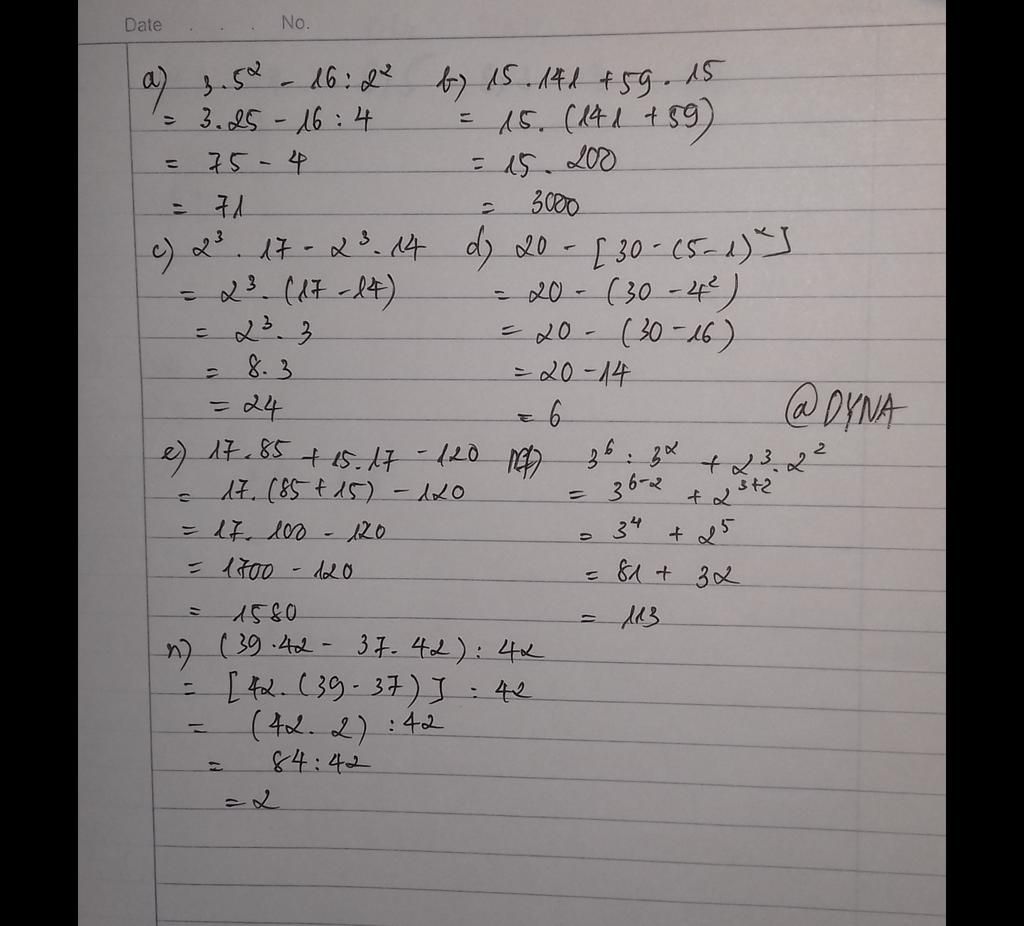 Date . . . No.
a) 3.5² - 16:2²
= 3.25 - 16:4
= 75 - 4
= 71
b) 15.141 + 59.15
= 15.(141 + 59)
= 15.200
= 3000
c) 2³.17 - 2³.14
= 2³.(17 - 14)
= 2³.3
= 8.3
= 24
d) 20 - [30 - (5-1)²]
= 20 - (30 - 4²)
= 20 - (30 - 16)
= 20 - 14
= 6
@DYNA
e) 17.85 + 15.17 - 120
= 17.(85 + 15) - 120
= 17.100 - 120
= 1700 - 120
= 1580
3⁶:3² + 2³.2²
= 3⁶⁻² + 2³⁺²
= 3⁴ + 2⁵
= 81 + 32
= 113
n) (39.42 - 37.42):42
= [42.(39 - 37)]:42
= (42.2):42
= 84:42
= 2